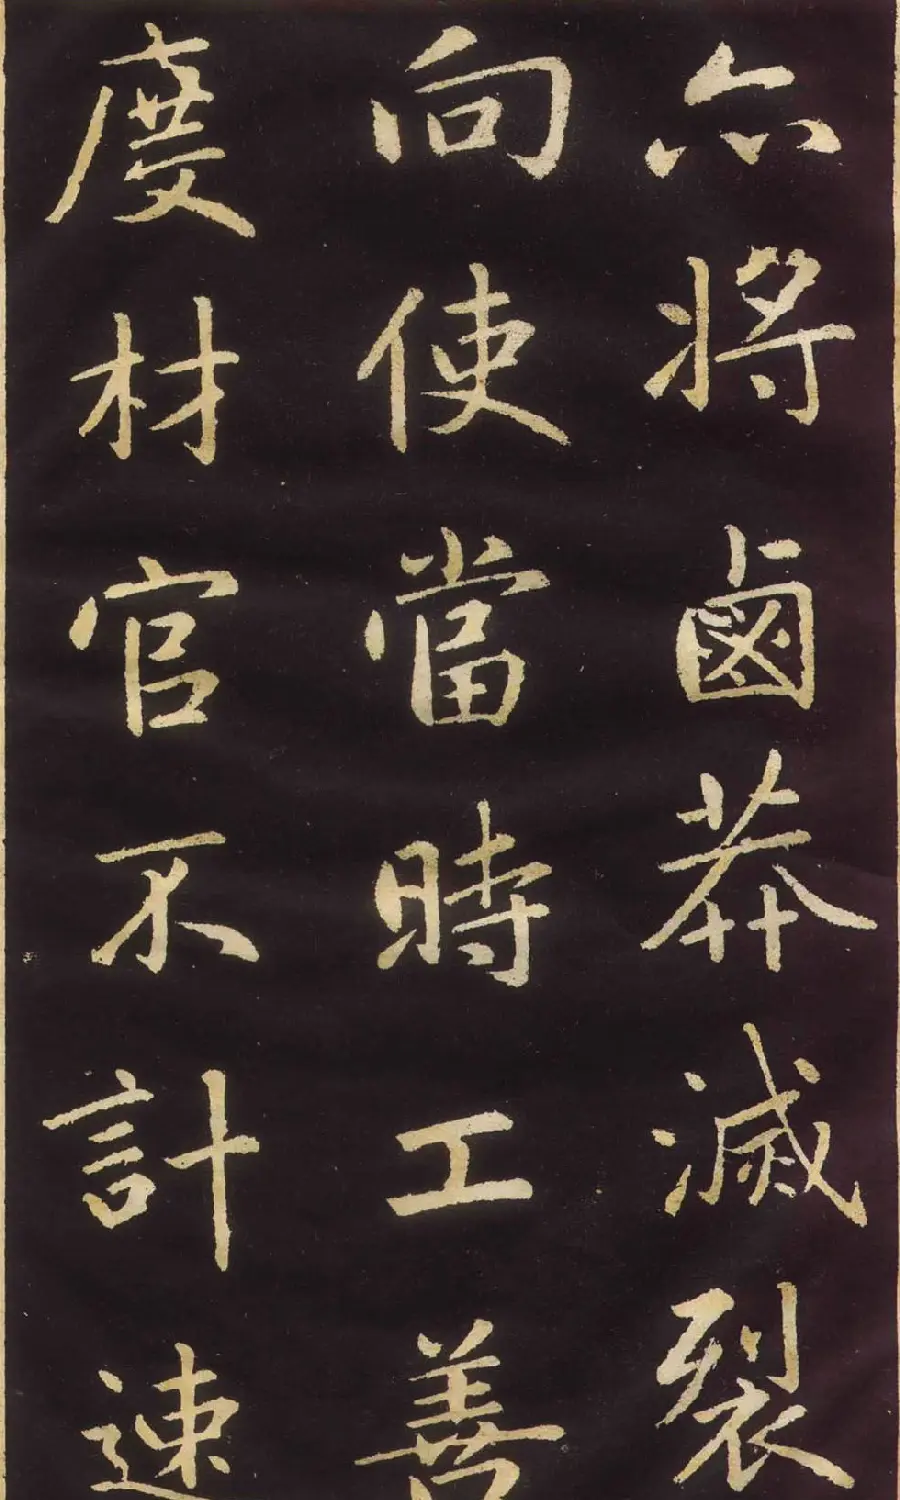 亦將鹵莽滅裂
向使當時工善
度材官不計速